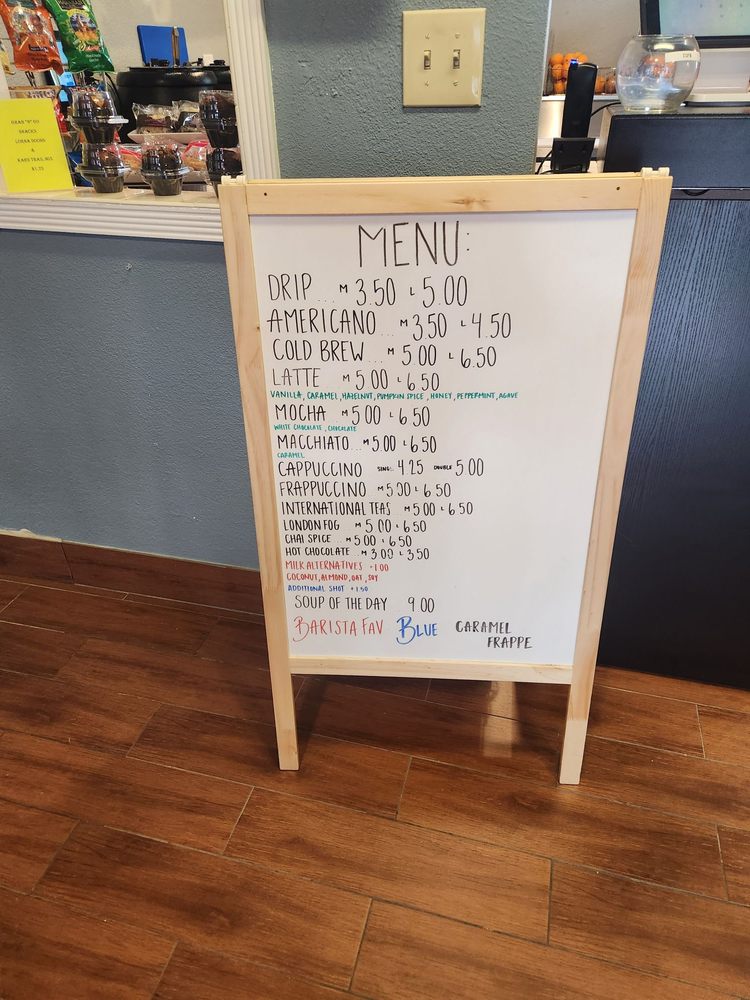 GRAB "N" GO
SNACKS
MENU:
DRIP ... M 3.50 L 5.00
AMERICANO ... M 3.50 L 4.50
COLD BREW ... M 5.00 L 6.50
LATTE ... M 5.00 L 6.50
VANILLA, CARAMEL, HAZELNUT, PUMPKIN SPICE, HONEY, PEPPERMINT, AGAVE
MOCHA ... M 5.00 L 6.50
WHITE CHOCOLATE, CHOCOLATE
MACCHIATO ... M 5.00 L 6.50
CARAMEL
CAPPUCCINO SING: 4.25 DOUBLE 5.00
FRAPPUCCINO M 5.00 L 6.50
INTERNATIONAL TEAS M 5.00 L 6.50
LONDON FOG M 5.00 L 6.50
CHAI SPICE ... M 5.00 L 6.50
HOT CHOCOLATE ... M 3.00 L 3.50
MILK ALTERNATIVES +1.00
COCONUT, ALMOND, OAT, SOY
ADDITIONAL SHOT +1.50
SOUP OF THE DAY 9.00
BARISTA FAV BLUE CARAMEL
FRAPPE